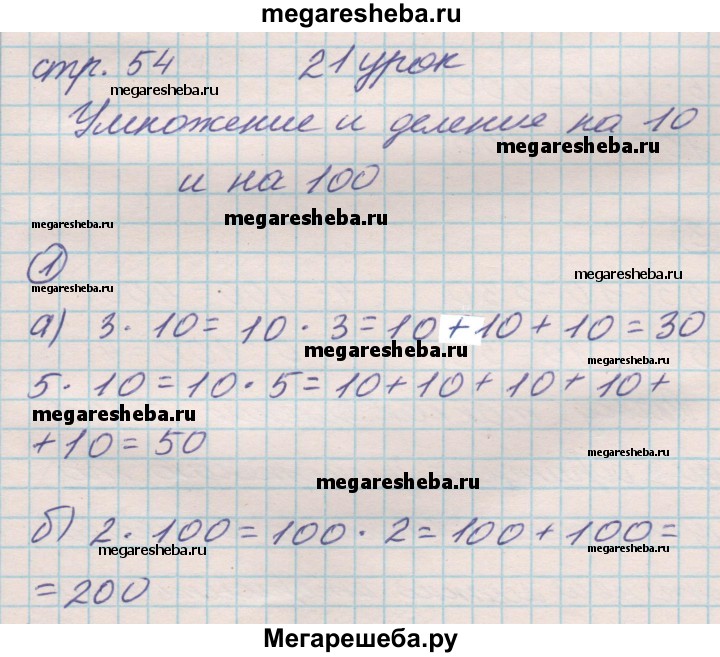 megaresheba.ru
стр. 54 21 урок
megaresheba.ru
Умножение и деление на 10
megaresheba.ru
и на 100
megaresheba.ru
megaresheba.ru
1
megaresheba.ru
megaresheba.ru
а) 3 · 10 = 10 · 3 = 10 + 10 + 10 = 30
megaresheba.ru
megaresheba.ru
5 · 10 = 10 · 5 = 10 + 10 + 10 + 10 +
megaresheba.ru
+ 10 = 50
megaresheba.ru
megaresheba.ru
б) 2 · 100 = 100 · 2 = 100 + 100 =
megaresheba.ru
megaresheba.ru
= 200
Мегарешеба.ру